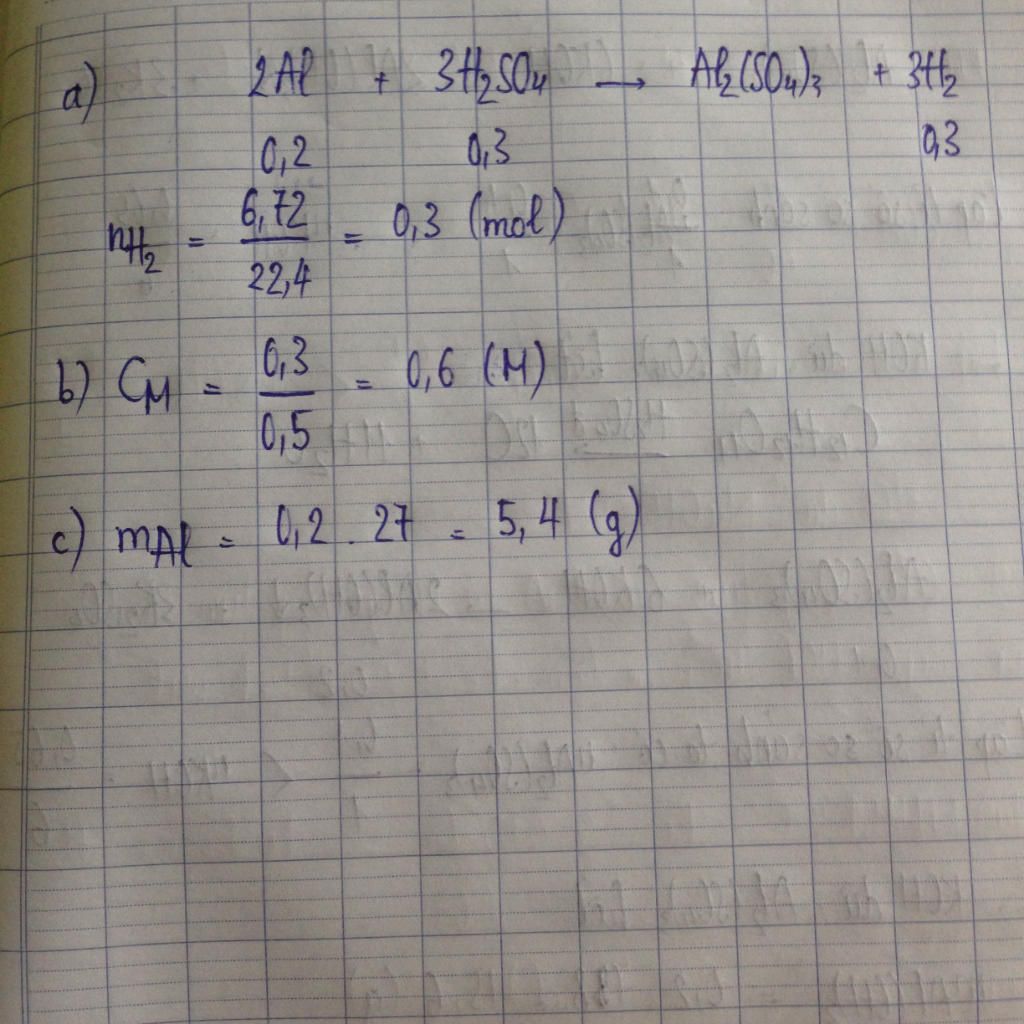 a) 2Al + 3H₂SO₄ → Al₂(SO₄)₃ + 3H₂
0,2 0,3 0,3
nH₂ = 6,72 / 22,4 = 0,3 (mol)
b) CM = 0,3 / 0,5 = 0,6 (M)
c) mAl = 0,2 . 27 = 5,4 (g)